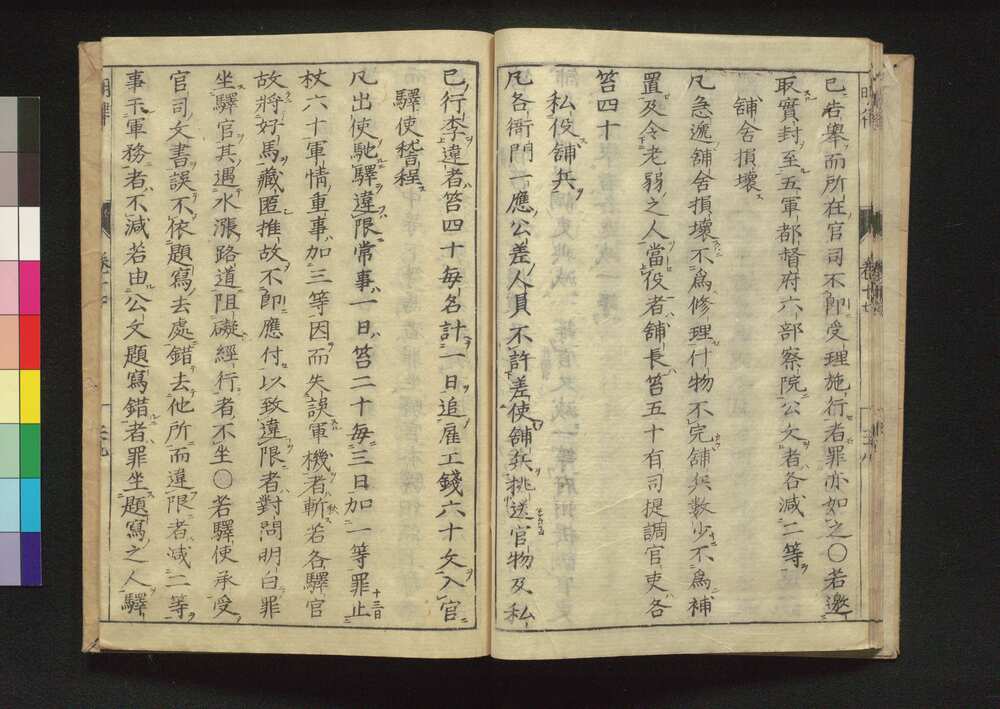 已告舉而所在官司不卽受理施行者罪亦如之〇若邀
取實封至五軍都督府六部察院公文者各減二等
舖舍損壞
凡急遞舖舍損壞不爲修理什物不完舖兵數少不爲補
置及令老弱之人當役者舖長笞五十有司提調官吏各
笞四十
私役舖兵
凡各衙門一應公差人員不許差使舖兵挑送官物及私
已行李違者笞四十每名計一日追雇工錢六十文入官
驛使稽程
凡出使馳驛違限常事一日笞二十每三日加一等罪止
杖六十軍情重事加三等因而失誤軍機者斬若各驛官
故將好馬藏匿推故不卽應付以致違限者對問明白罪
坐驛官其遇水漲路道阻礙經行者不坐〇若驛使承受
官司文書誤不依題寫去處錯去他所而違限者減二等
事干軍務者不減若由公文題寫錯者罪坐題寫之人驛